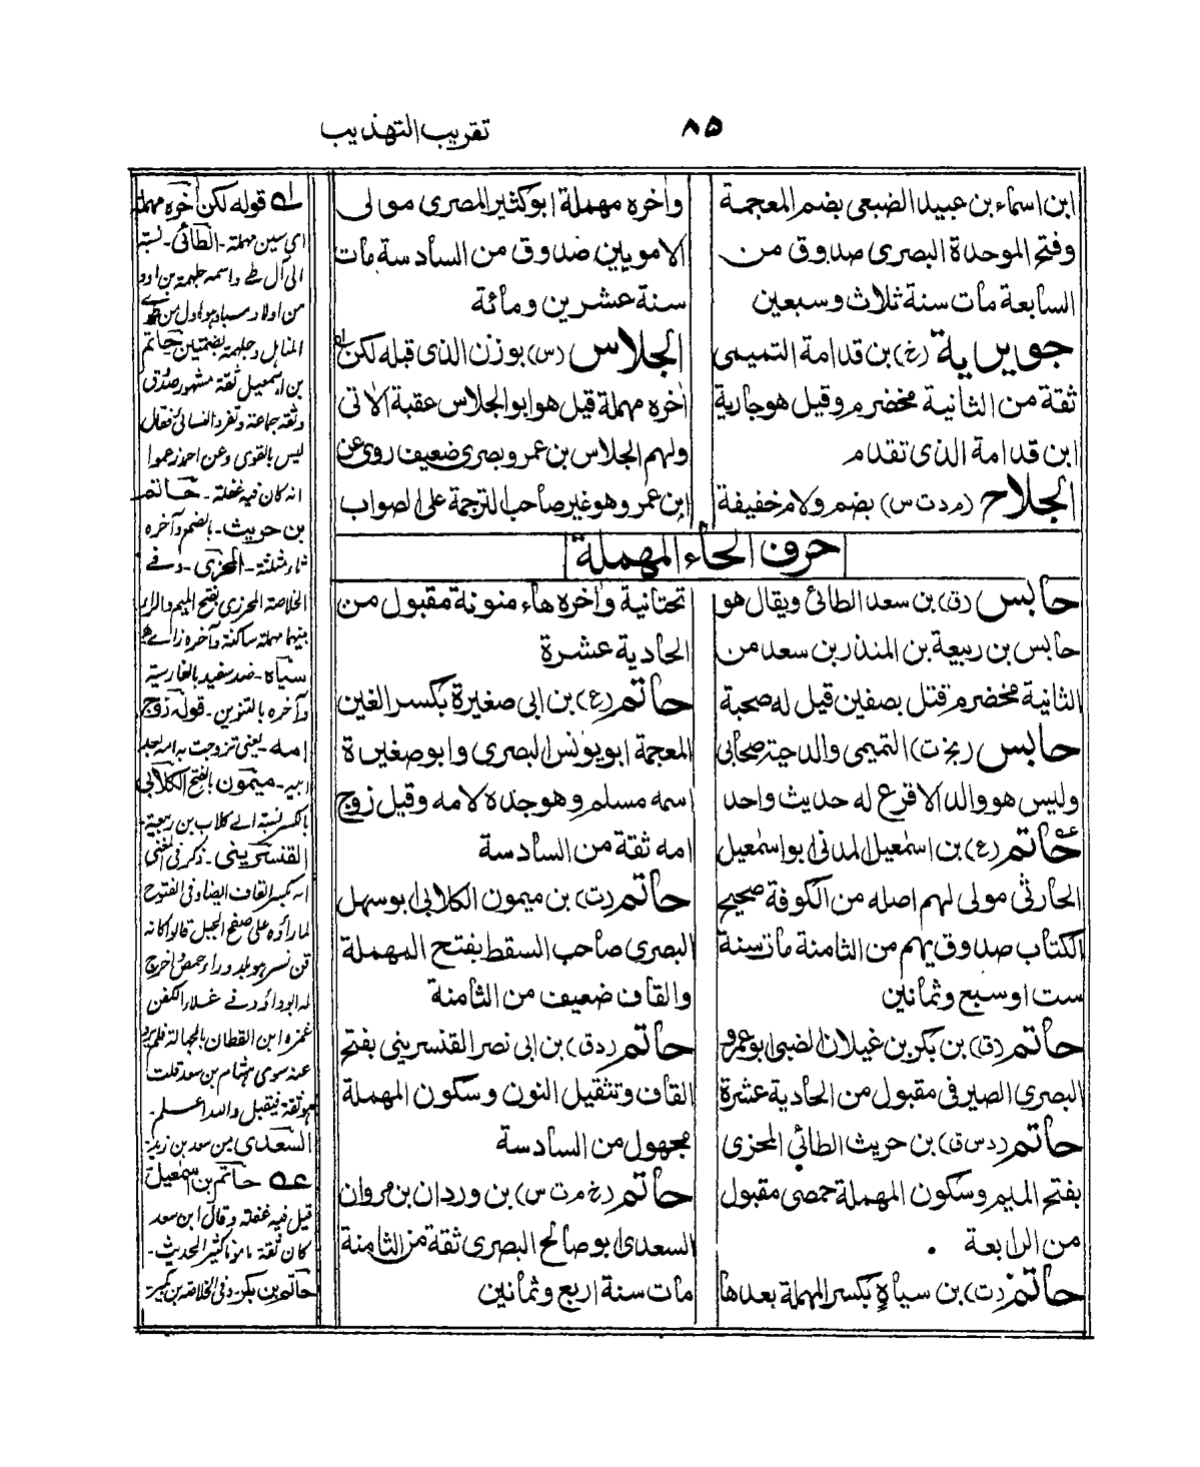 ٨٥
تقريب التهذيب
ابن اسماء بن عبيد الضبعى بضم المعجمة
وفتح الموحدة البصرى صدوق من
السابعة مات سنة ثلاث وسبعين
جويرية (خ) بن قدامة التميمى
ثقة من الثانية مخضرم وقيل هو جارية
ابن قدامة الذى تقدم
الجلاح (م د ت س) بضم ولام خفيفة
واخره مهملة ابو كثير المصرى مولى
الامويين صدوق من السادسة مات
سنة عشرين ومائة
الجلاس (س) بوزن الذى قبله لكن
اخره مهملة قيل هو ابو الجلاس عقبة الاتى
ولهم الجلاس بن عمرو بصرى ضعيف روى عن
ابن عمر وهو غير صاحب الترجمة على الصواب
حرف الحاء المهملة
حابس (ق) بن سعد الطائى ويقال هو
حابس بن ربيعة بن المنذر بن سعد من
الثانية مخضرم قتل بصفين قيل له صحبة
حابس (بخ ت) التميمى والد حية صحابى
وليس هو والد الاقرع له حديث واحد
حاتم (ع) بن اسمعيل المدنى ابو اسمعيل
الحارثى مولى لهم اصله من الكوفة صحيح
الكتاب صدوق يهم من الثامنة مات سنة
ست او سبع وثمانين
حاتم (ق) بن بكر بن غيلان الضبى ابو عمرو
البصرى الصيرفى مقبول من الحادية عشرة
حاتم (د س ق) بن حريث الطائى المحرى
بفتح الميم وسكون المهملة حمصى مقبول
من الرابعة .
حاتم (ت) بن سياه بكسر المهملة بعدها
تحتانية واخره هاء منونة مقبول من
الحادية عشرة
حاتم (ع) بن ابى صغيرة بكسر الغين
المعجمة ابو يونس البصرى وابو صغيرة
اسمه مسلم وهو جده لامه وقيل زوج
امه ثقة من السادسة
حاتم (ت) بن ميمون الكلابى ابو سهل
البصرى صاحب السقط بفتح المهملة
والقاف ضعيف من الثامنة
حاتم (د ق) بن ابى نصر القنسرينى بفتح
القاف وتثقيل النون وسكون المهملة
مجهول من السادسة
حاتم (خ م ت س) بن وردان بن مروان
السعدى ابو صالح البصرى ثقة من الثامنة
مات سنة اربع وثمانين
قوله لكن آخره مهملة
اى سين مهملة - الطائى - نسبة
الى آل طے واسمه جلهمة بن ادد
من اولاد سبا
المناهل وجلهمة بضمتين حاتم
بن اسمعيل ثقة مشهور صدوق
وثقه جماعة وتفرد النسائى فقال
ليس بالقوى وعن احمد زعموا
انه كان فيه غفلة - حاتم
بن حريث - بالضم وآخره
ثاء مثلثة - المحرى - وفے
الخلاصة المحرزى بفتح الميم والراء
بينهما مهملة ساكنة وآخره زاے
سياه - ضد سفيد بالفارسية
وآخره بالتنوين - قوله زوج
امه - يعنى تزوجت به امه بعد
ابيه - ميمون بالفتح الكلابى
بالكسر نسبة الے كلاب بن ربيعة
القنسرينى - ذكر فى المغنى
انه بكسر القاف ايضا وفى الفتوح
لما رأوه على صفح الجبل قالوا كانه
قن نسر هو بلد وراء حمص اخرج
له ابوداؤد فے غلاء الكفن
غمزه ابن القطان بالجهالة فلم يرو
عنه سوى هشام بن سعد قلت
هو ثقة فيقبل والله اعلم -
السعدى من سعد بن زيد
حاتم بن اسمعيل
قيل فيه غفلة وقال ابن سعد
كان ثقة مامونا كثير الحديث -
حاتم بن بكر وفى الخلاصة بن بكير